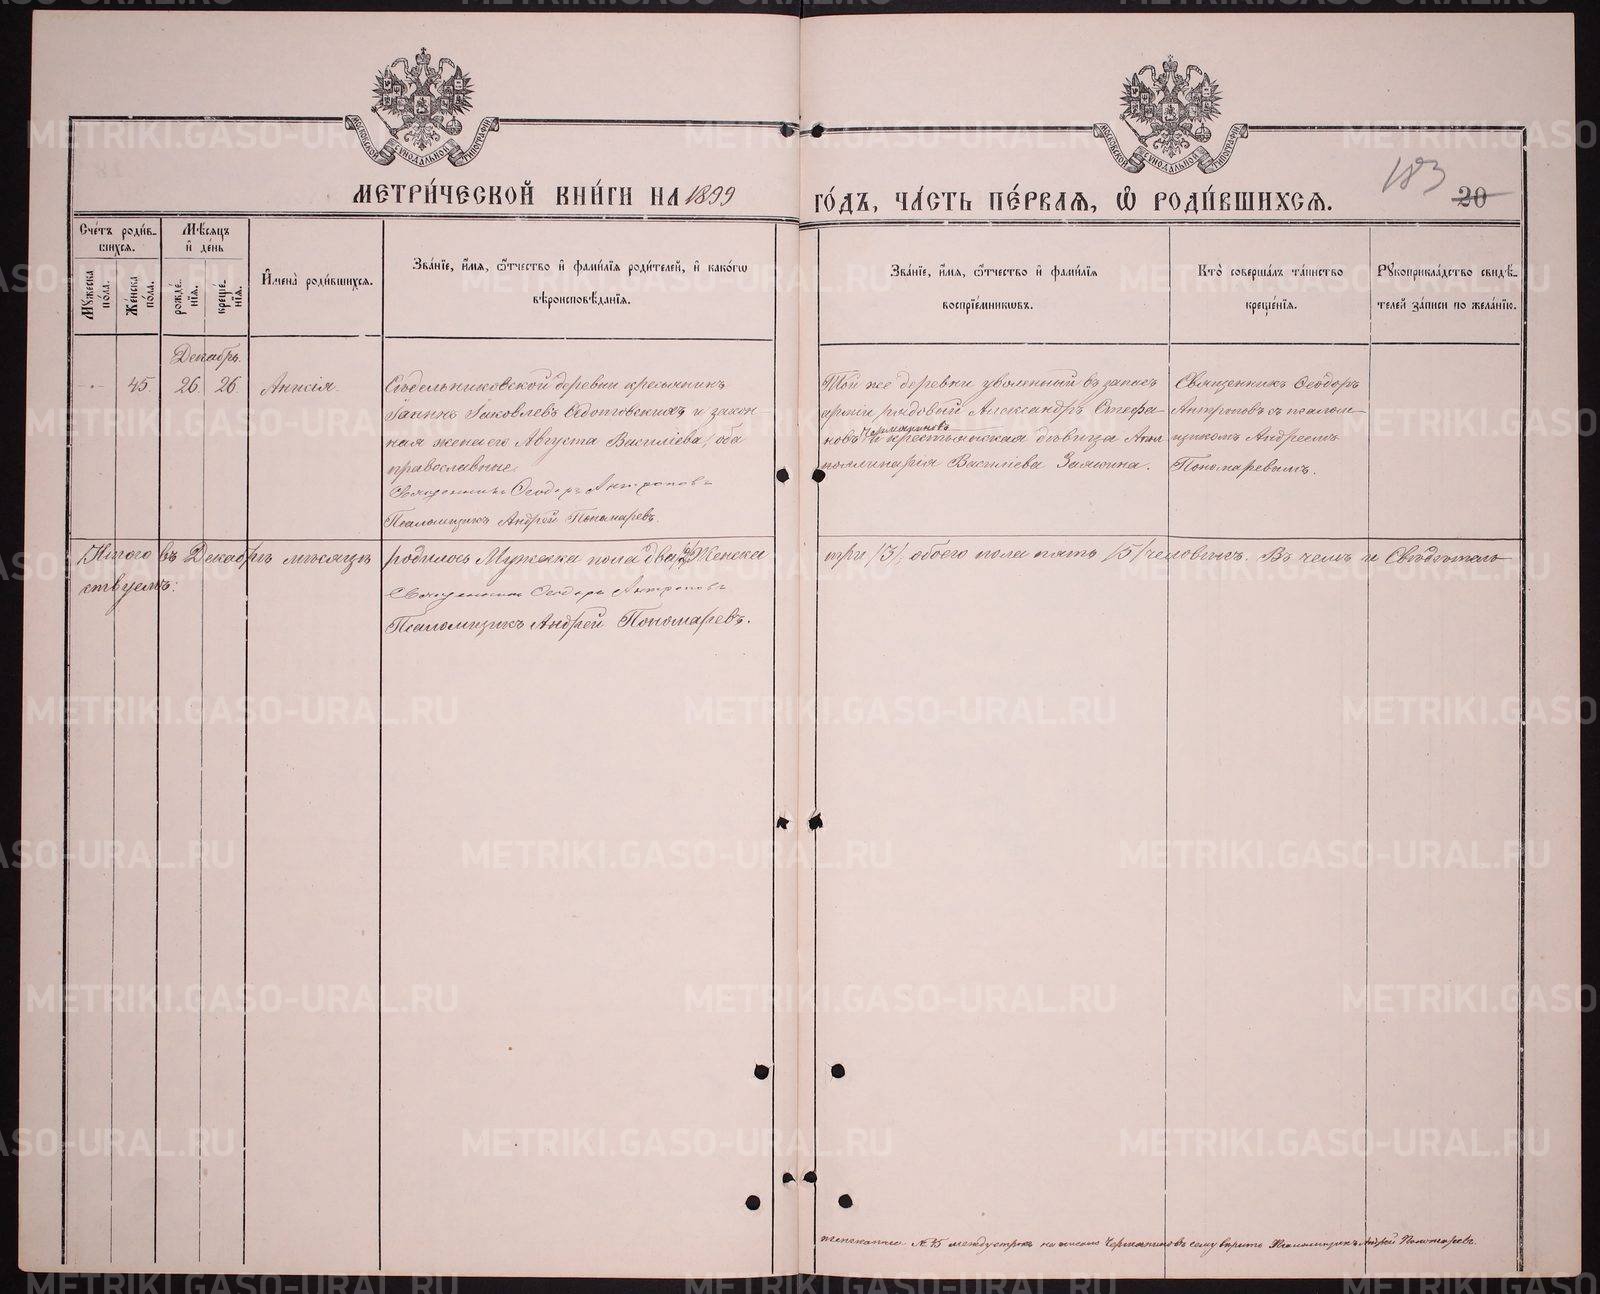 МОСКОВСКОЙ СѴНОДАЛЬНОЙ ТИПОГРАФІИ
МОСКОВСКОЙ СѴНОДАЛЬНОЙ ТИПОГРАФІИ
183
20
МЕТРИ́ЧЕСКОЙ КНИ́ГИ НА 1899
ГО́ДЪ, ЧА́СТЬ ПЕ́РВАѦ, Ѡ РОДИ́ВШИХСѦ.
Сче́тъ роди́в-
шихсѧ.
Мꙋжеска
по́ла.
Же́нска
по́ла.
Мѣ́сѧцъ
и де́нь
рожде́-
нїѧ.
креще́-
нїѧ.
Имена̀ роди́вшихсѧ.
Зва́нїе, и́мѧ, ѻ́тчество и фами́лїѧ роди́телей, и како́гѡ
вѣроисповѣ́данїѧ.
Зва́нїе, и́мѧ, ѻ́тчество и фами́лїѧ
воспрїе́мникѡвъ.
Кто̀ соверша́лъ та́инство
креще́нїѧ.
Рꙋкоприкла́дство свидѣ́-
телей за́писи по жела́нїю.
Декабрь.
45. 26. 26 Анисія.
Сѣдельниковской деревни крестьянинъ
Іаковлевъ Ѳедотовскихъ и закон-
ная жена его Августа Василіева, оба
православные.
Священникъ Ѳеодоръ Антроповъ
Псаломщикъ Андрей Пономаревъ.
Той же деревни уволенный въ запасъ
арміи рядовый Александръ Стефа-
новъ Чермяниновъ и крестьянская дѣвица Апол
поллинарія Василіева Заякина.
Священникъ Ѳеодоръ
Антроповъ съ псалом-
щикомъ Андреемъ
Пономаревымъ.
Итого въ Декабрѣ мѣсяцѣ родилось Мужеска пола два /2/ Женска три /3/, обоего пола пять /5/ человѣкъ. Въ чемъ и Свидѣтель-
ствуемъ:
Священникъ Ѳеодоръ Антроповъ
Псаломщикъ Андрей Пономаревъ.
№ 45 между строкъ написано Чермяниновъ сему вѣрить Псаломщикъ Андрей Пономаревъ.
METRIKI.GASO-URAL.RU